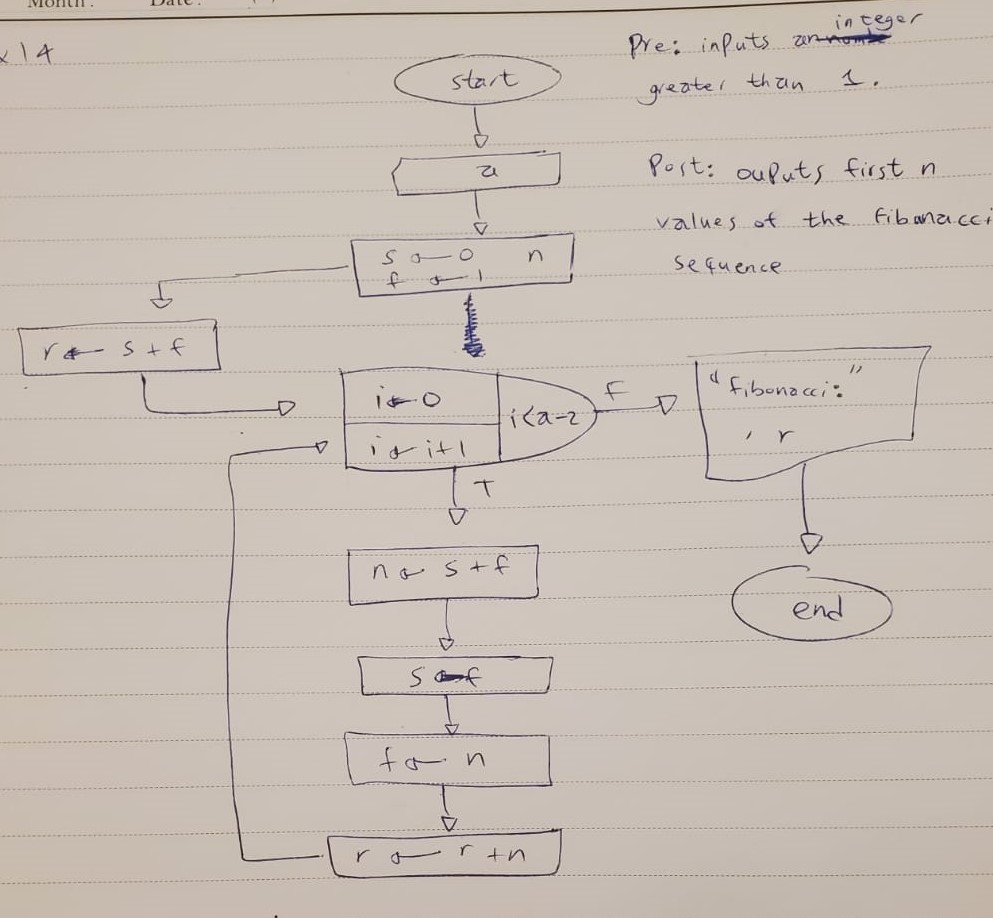 Month: Date:
x 14
Pre: inputs integer
greater than 1.
Post: ouputs first n
values of the Fibanacci
sequence
start
a
s ← 0 n
f ← 1
r ← s + f
i ← 0
i ← i+1
i<a-2
F
"fibonacci:"
, r
end
T
n ← s + f
s ← f
f ← n
r ← r + n